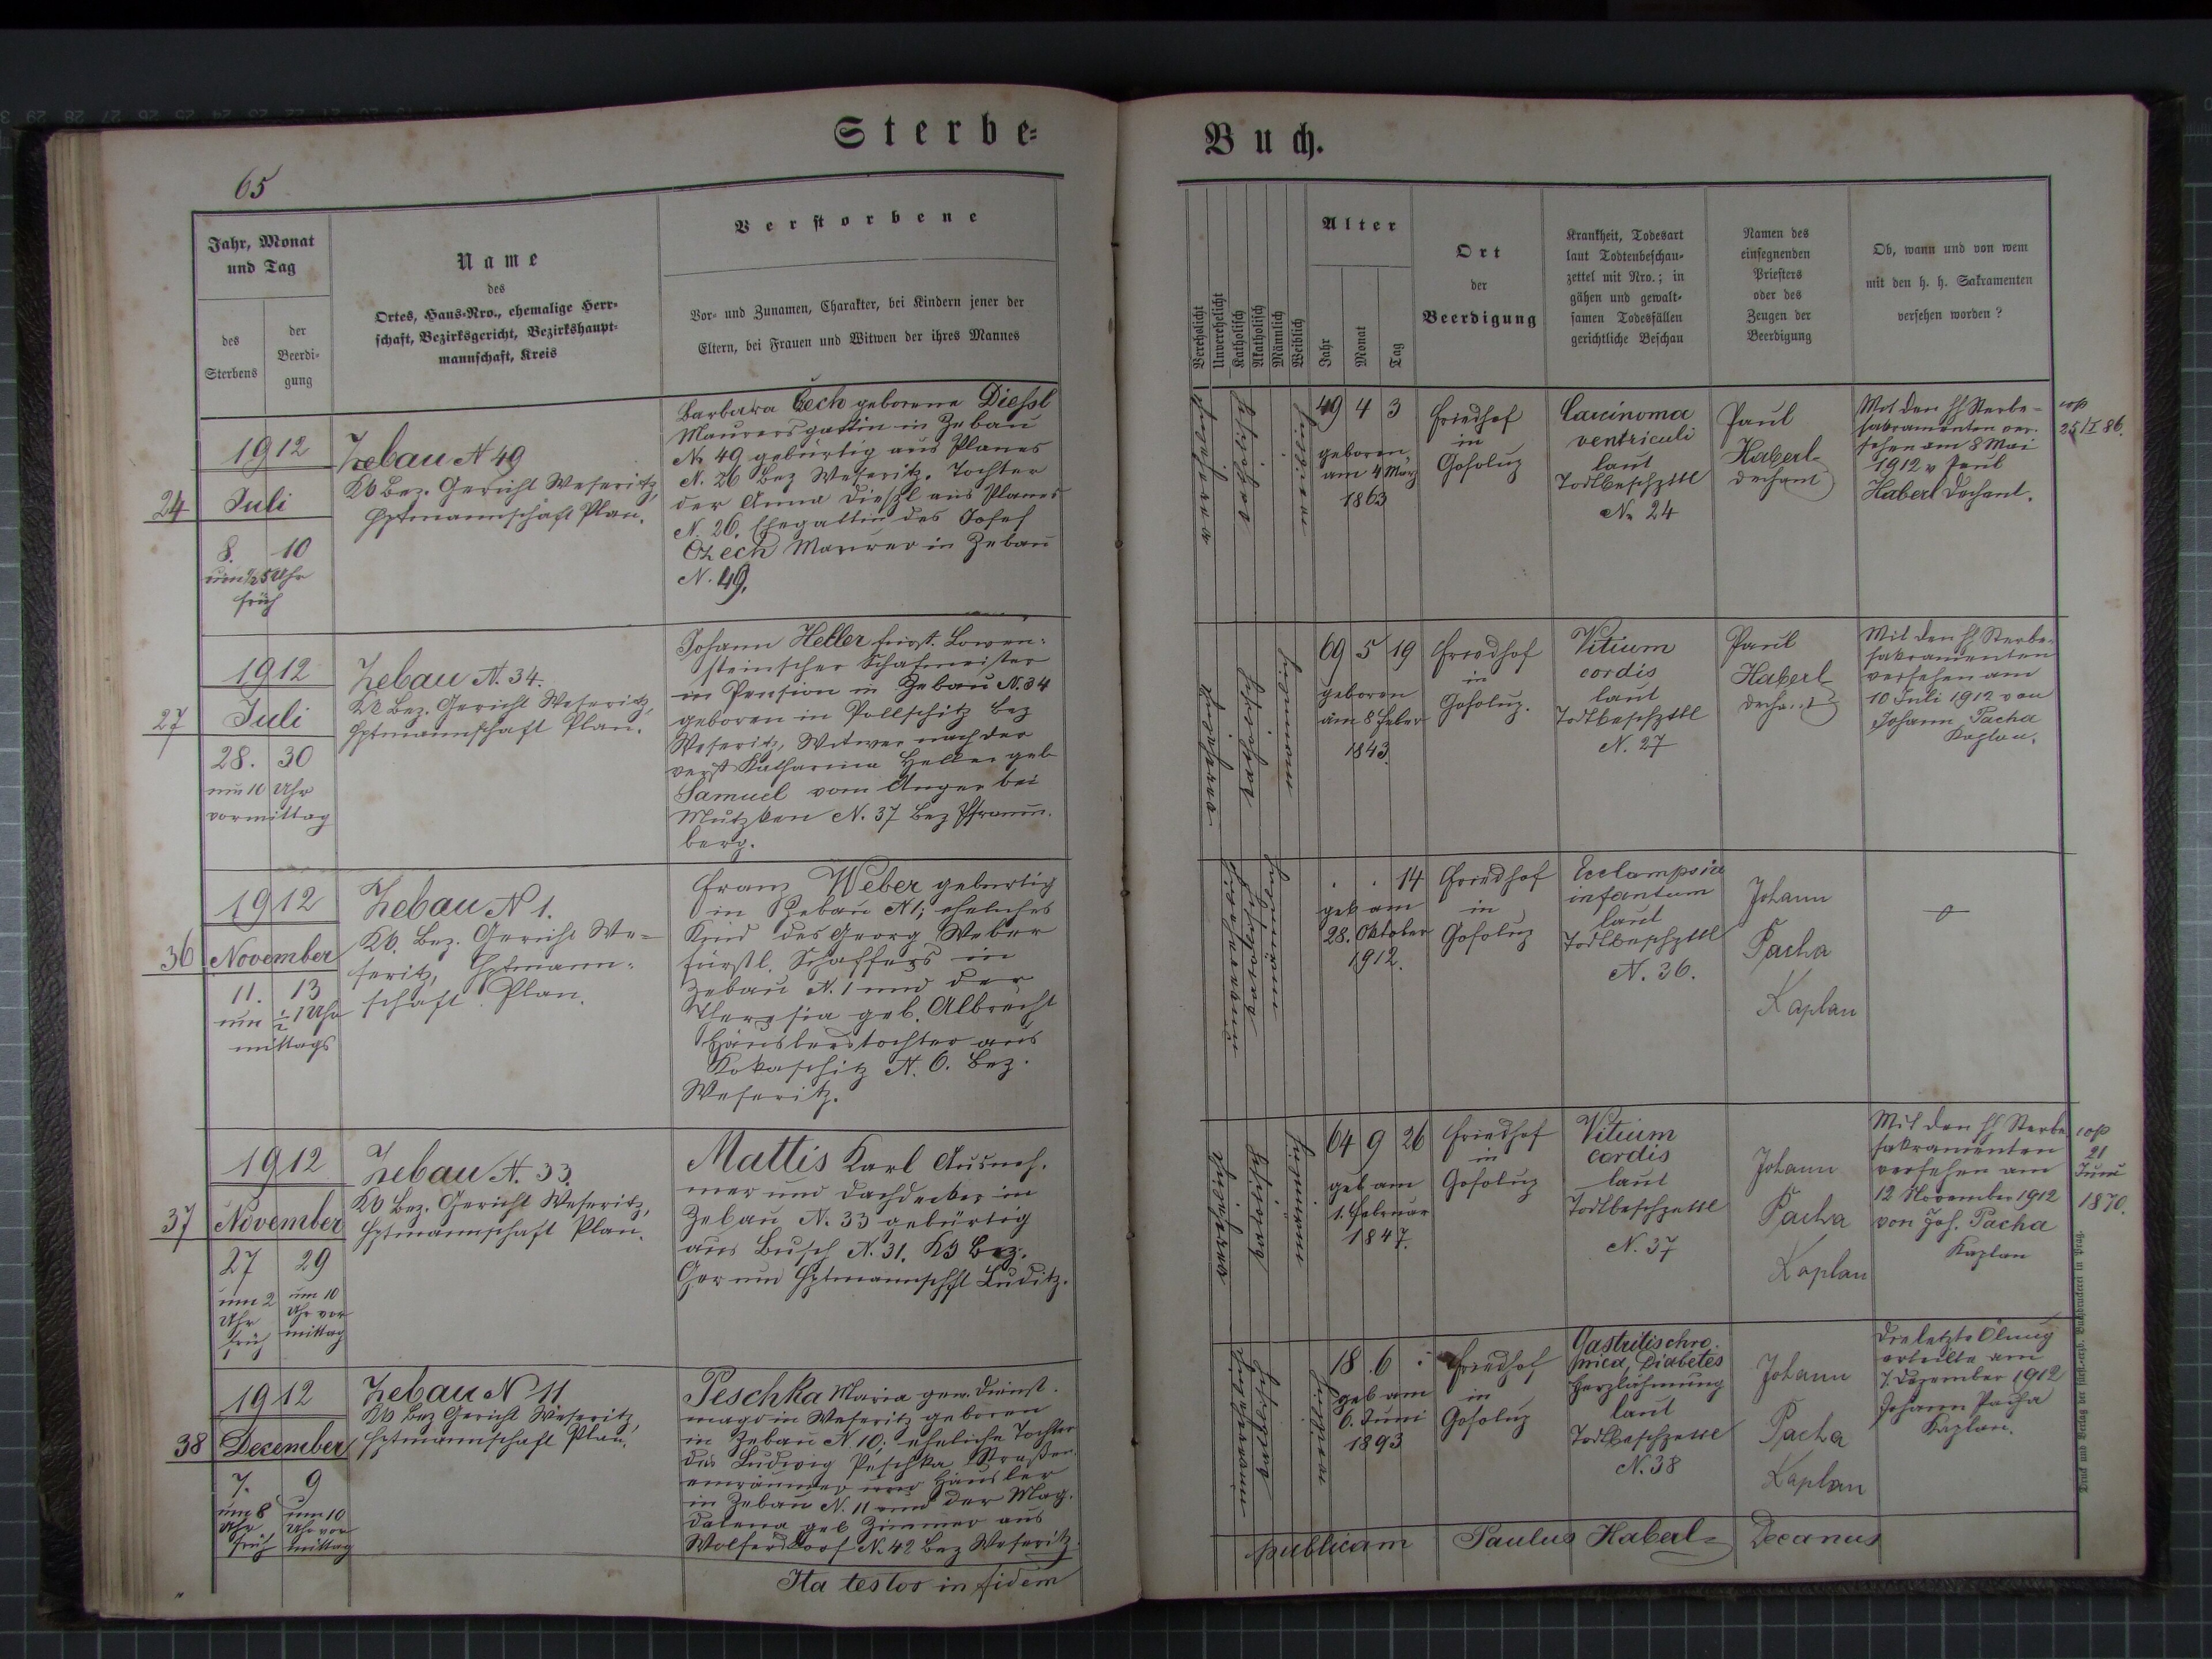 Sterbe=
Buch.
65
Jahr, Monat
und Tag
des
Sterbens
der
Beerdi-
gung
Name
des
Ortes, Haus-Nro., ehemalige Herr-
schaft, Bezirksgericht, Bezirkshaupt-
mannschaft, Kreis
Verstorbene
Vor- und Zunamen, Charakter, bei Kindern jener der
Eltern, bei Frauen und Witwen der ihres Mannes
Verehelicht
Unverehelicht
Katholisch
Akatholisch
Männlich
Weiblich
Alter
Jahr
Monat
Tag
Ort
der
Beerdigung
Krankheit, Todesart
laut Todtenbeschau-
zettel mit Nro.; in
gähen und gewalt-
samen Todesfällen
gerichtliche Beschau
Namen des
einsegnenden
Priesters
oder des
Zeugen der
Beerdigung
Ob, wann und von wem
mit den h. h. Sakramenten
versehen worden?
24
1912
Juli
8. 10
um ½5 Uhr
früh
Zebau N 49
Kk Bez. Gericht Weseritz,
Hptmannschaft Plan.
Barbara Čech geborene Diessl
Maurersgattin in Zebau
N. 49 gebürtig aus Planes
N. 26 Bez Weseritz. Tochter
der Anna Diessl aus Planes
N. 26. Ehegattin des Josef
Czech Maurer in Zebau
N. 49.
verheiratet
katholisch
weiblich
49 4 3
geboren
am 4 März
1863
Friedhof
in
Gosoluz
Carcinoma
ventriculi
laut
Todtbeschzttl
N. 24
Paul
Haberl
Dechant
Mit den hh Sterbe-
sakramenten ver-
sehen am 8 Mai
1912 v Paul
Haberl Dechant.
cop
27
1912
Juli
28. 30
um 10 Uhr
vormittag
Zebau N. 34.
Kk Bez. Gericht Weseritz,
Hptmannschaft Plan.
Johann Heller fürstl. Löwen-
steinscher Schafmeister
in Pension in Zebau N. 34
geboren in Pollschitz Bez
Weseritz, Witwer nach der
verst Katharina Heller geb
Samuel vom Anger bei
Mutzken N. 37 Bez Pfraum-
berg.
katholisch
männlich
69 5 19
geboren
am 8 Feber
1843.
Friedhof
in
Gosoluz.
Vitium
cordis
laut
Todtbeschzttl
N. 27
Paul
Haberl
Dechant
Mit den hh Sterbe-
sakramenten
versehen am
10 Juli 1912 von
Johann Pacha
Kaplan.
36
1912
November
11. 13
um ½ 1 Uhr
mittags
Zebau N 1.
Kk. Bez. Gericht We-
seritz, Hptmann-
schaft Plan.
Franz Weber gebürtig
in Zebau N 1; eheliches
Kind des Georg Weber
fürstl. Schaffers in
Zebau N. 1 und der
Theresia geb. Albrecht
Häuslerstochter aus
Kokaschitz N. 6. Bez.
Weseritz.
katholisch
männlich
. . 14
geb am
28. Oktober
1912.
Friedhof
in
Gosoluz
Ecclampsia
infantum
laut
Todtbeschzttl
N. 36.
Johann
Pacha
Kaplan
37
1912
November
27 29
um 2
Uhr
früh
um 10
Uhr vor
mittag
Zebau N. 33.
Kk Bez. Gericht Weseritz,
Hptmannschaft Plan.
Mattis Karl Ausneh-
mer und Dachdecker in
Zebau N. 33 gebürtig
aus Busch N. 31. Kk Bez.
Ger und Hptmannschft Luditz.
verheiratet
katholisch
männlich
64 9 26
geb am
1. Februar
1847.
Friedhof
in
Gosoluz
Vitium
cordis
laut
Todtbeschzettl
N. 37
Johann
Pacha
Kaplan
Mit den hh Sterbe
sakramenten
versehen am
12 November 1912
von Joh. Pacha
Kaplan
cop
21
Juni
1870.
38
1912
December
7. 9
um 8
Uhr
früh
um 10
Uhr vor
mittag
Zebau N 11
Kk Bez Gericht Weseritz,
Hptmannschaft Plan.
Peschka Maria gew. Dienst-
magd in Weseritz geboren
in Zebau N. 10; eheliche Tochter
des Ludwig Peschka Straßen-
einräumer und Häusler
in Zebau N. 11 und der Mag-
dalena geb Zimmer aus
Wolfersdorf N. 42 Bez Weseritz.
katholisch
weiblich
18 6 .
geb am
6. Juni
1893
Friedhof
in
Gosoluz
Gastritis chro-
nica, Diabetes
Herzlähmung
laut
Todtbeschzettl
N. 38
Johann
Pacha
Kaplan
Die letzte Ölung
erteilte am
7. Dezember 1912
Johann Pacha
Kaplan.
Ita testor in fidem
publicam Paulus Haberl Decanus
Druck und Verlag der fürst.-erzb. Buchdruckerei in Prag.